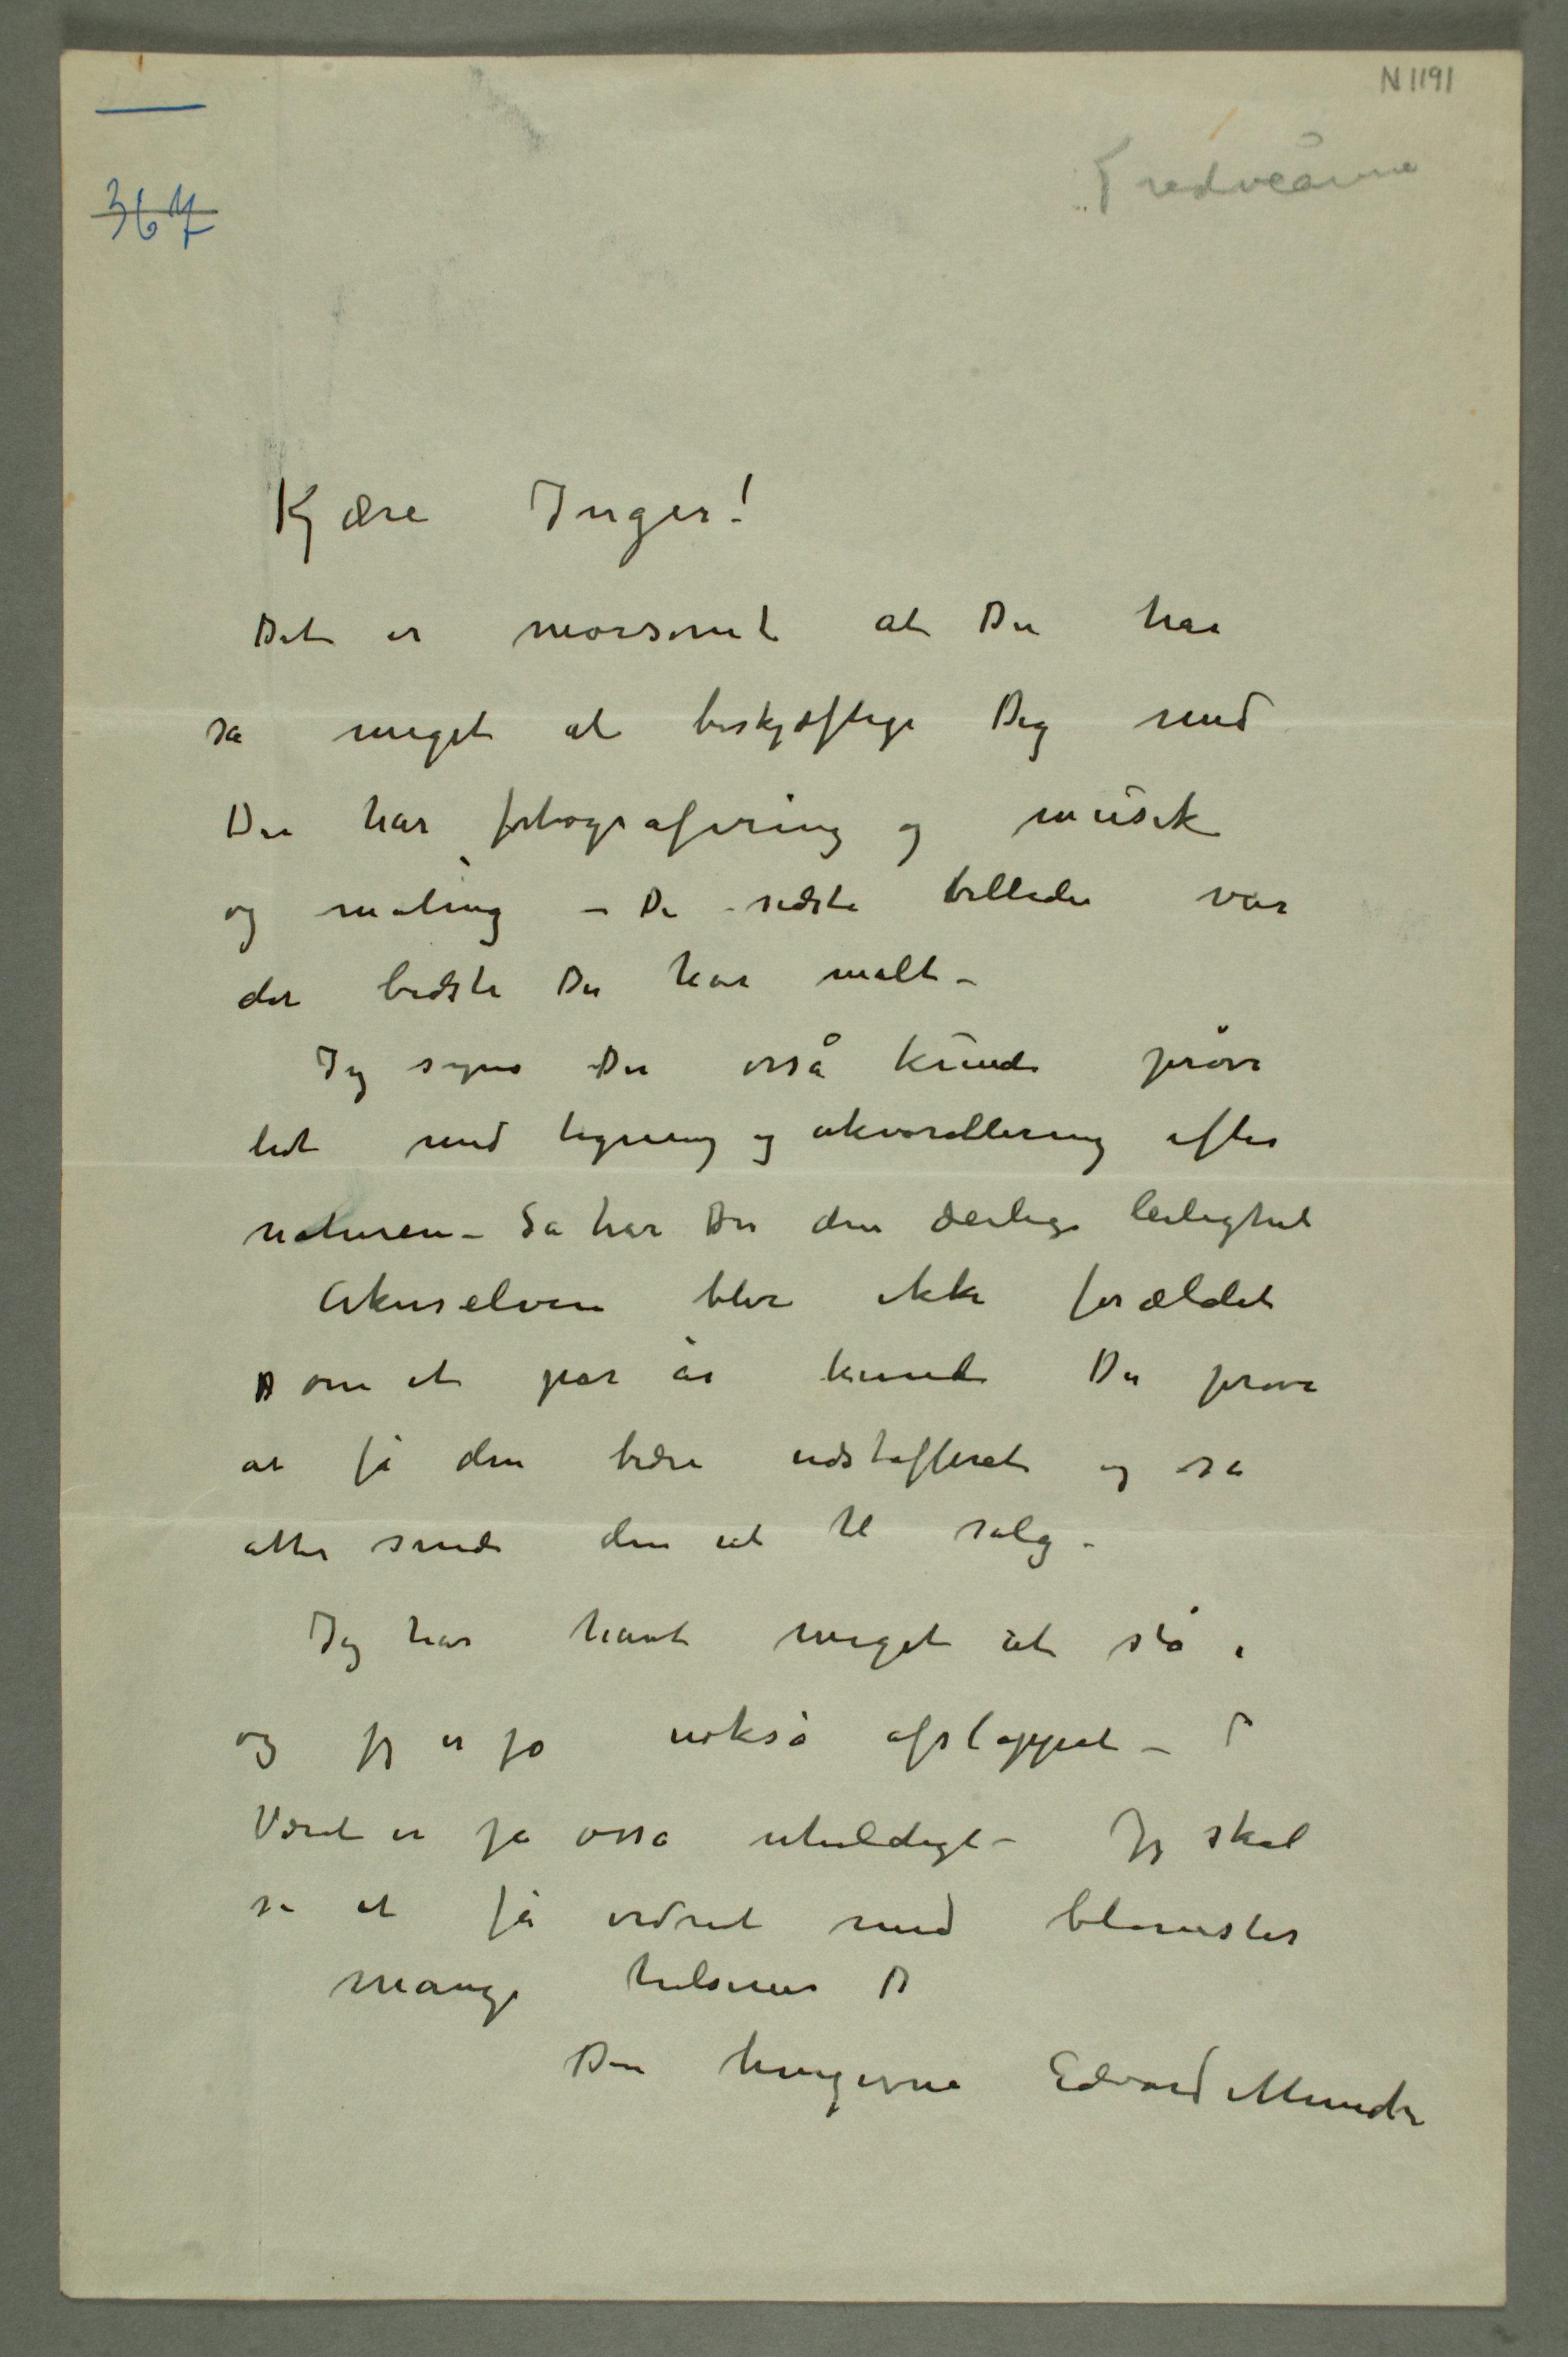 N 1191
367
Kjære Inger!
Det er morsomt at Du har
så meget at beskjæftige Dig med
Du har fotografering og musik
og maling – De sidste billeder var
det bedste Du har malt –
Jeg synes Du osså kunde prøve
lidt med tegning og akvarellering efter
naturen – Så har Du den deilige leilighet
Akerselven blir ikke forældet
om et par år kunde Du prøve
at få den bedre udstafferet og så
atter sende den ut til salg –
Jeg har havt meget at stå i
og jeg er jo nokså afslappet –
Været er jo osså uheldigt – Jeg skal
se at få ordnet med blomster
mange hilsener
Din hengivne Edvard Munch